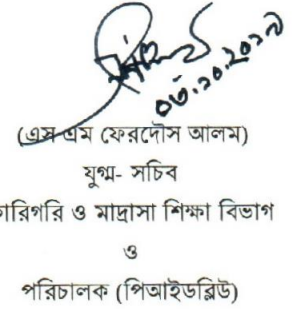 ০৮.১০.২০১৭
(এস এম ফেরদৌস আলম)
যুগ্ম- সচিব
কারিগরি ও মাদ্রাসা শিক্ষা বিভাগ
ও
পরিচালক (পিআইডব্লিউ)